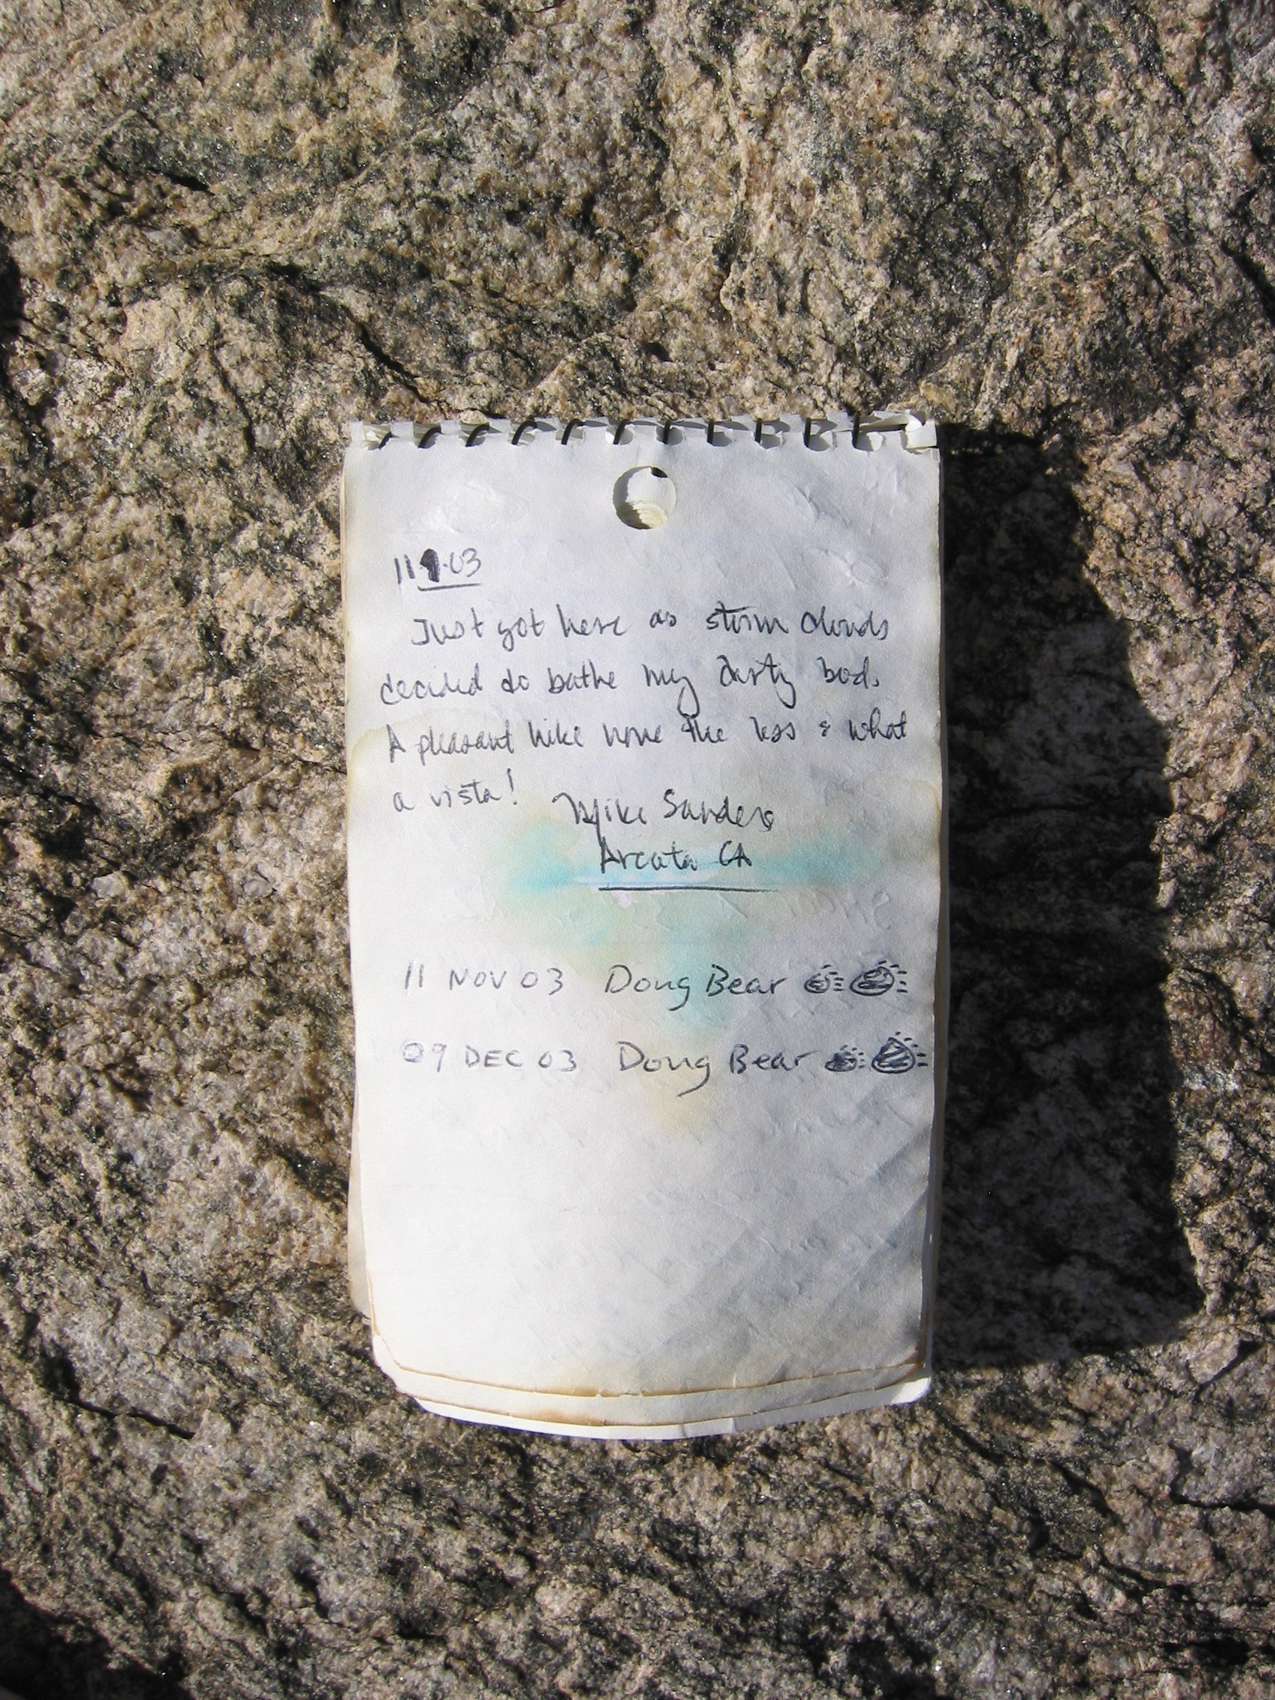 11.9.03
Just got here as storm clouds
decided to bathe my dirty bod.
A pleasant hike none the less & what
a vista!
Mike Sanders
Arcata CA
11 NOV 03 Doug Bear
09 DEC 03 Doug Bear